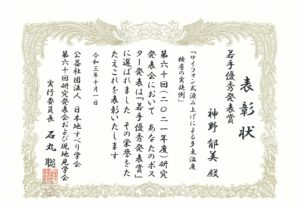 表彰状
若手優秀発表賞
神野 郁美 殿
「サイフォン式汲み上げによる多点温度
検層の実施例」
第六十回(二〇二一年度)研究
発表会において あなたのポス
ター発表は「若手優秀発表賞」
に選ばれました その栄誉をた
たえこれを表彰いたします
令和三年十月一日
公益社団法人 日本地すべり学会
第六十回研究発表会および現地見学会
実行委員長 石丸 聡